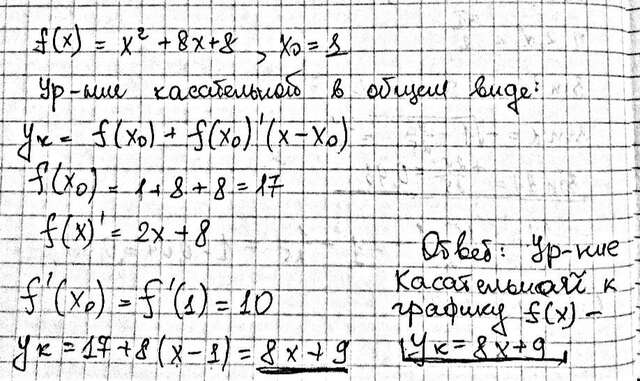 f(x) = x² + 8x + 8 , x₀ = 1
Ур-ние касательной в общем виде:
yк = f(x₀) + f(x₀)'(x - x₀)
f(x₀) = 1 + 8 + 8 = 17
f(x)' = 2x + 8
f'(x₀) = f'(1) = 10
yк = 17 + 8(x - 1) = 8x + 9
Ответ: Ур-ние
касательной к
графику f(x) -
yк = 8x + 9